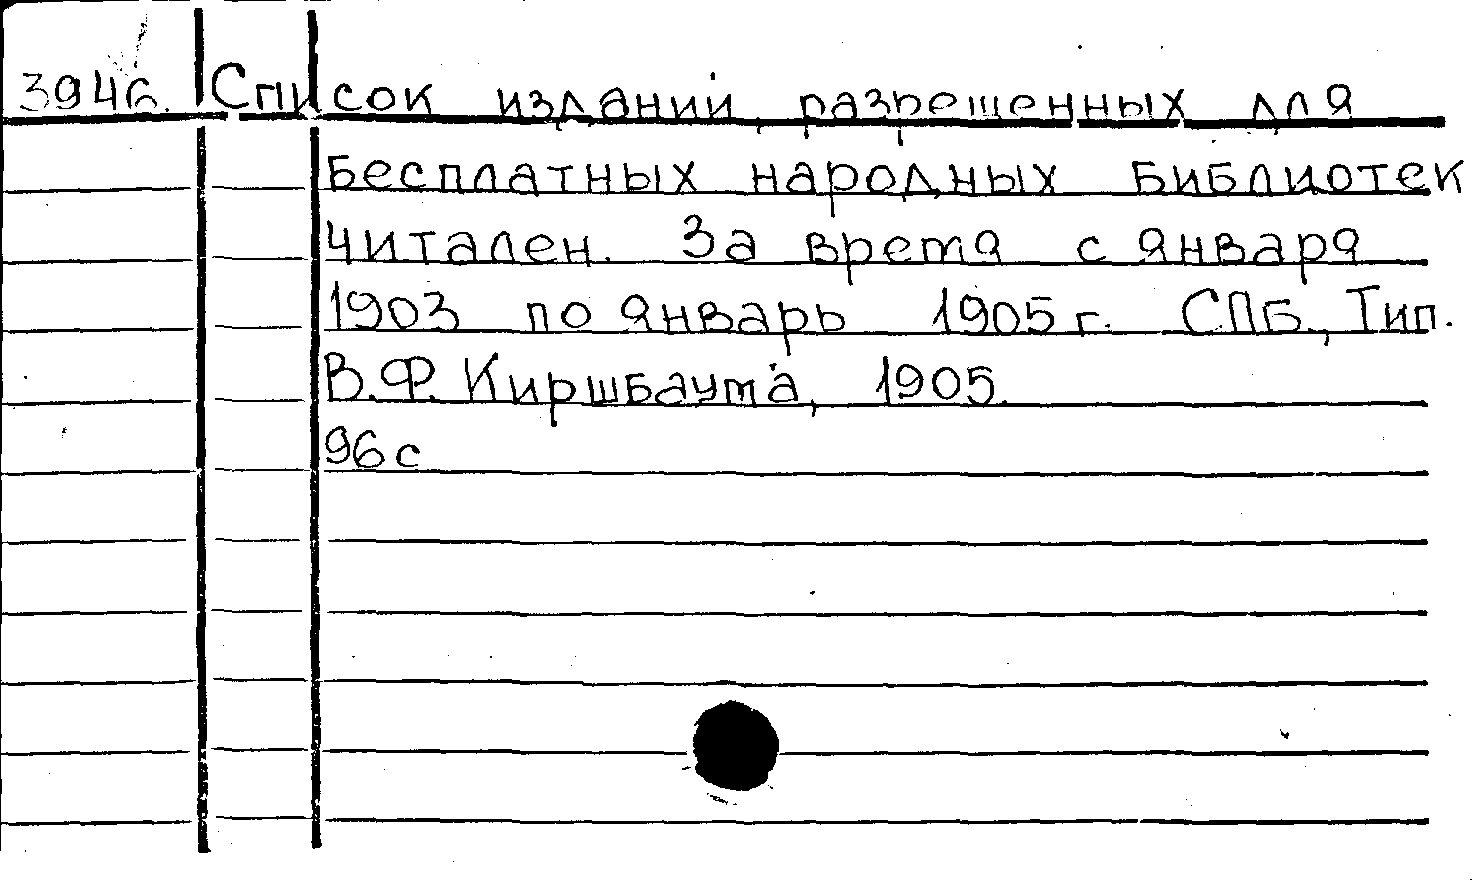 394б. Список изданий, разрешенных для
бесплатных народных библиотек
читален. За время с января
1903 по январь 1905 г. СПБ., Тип.
В.Ф. Киршбаума, 1905.
96 с